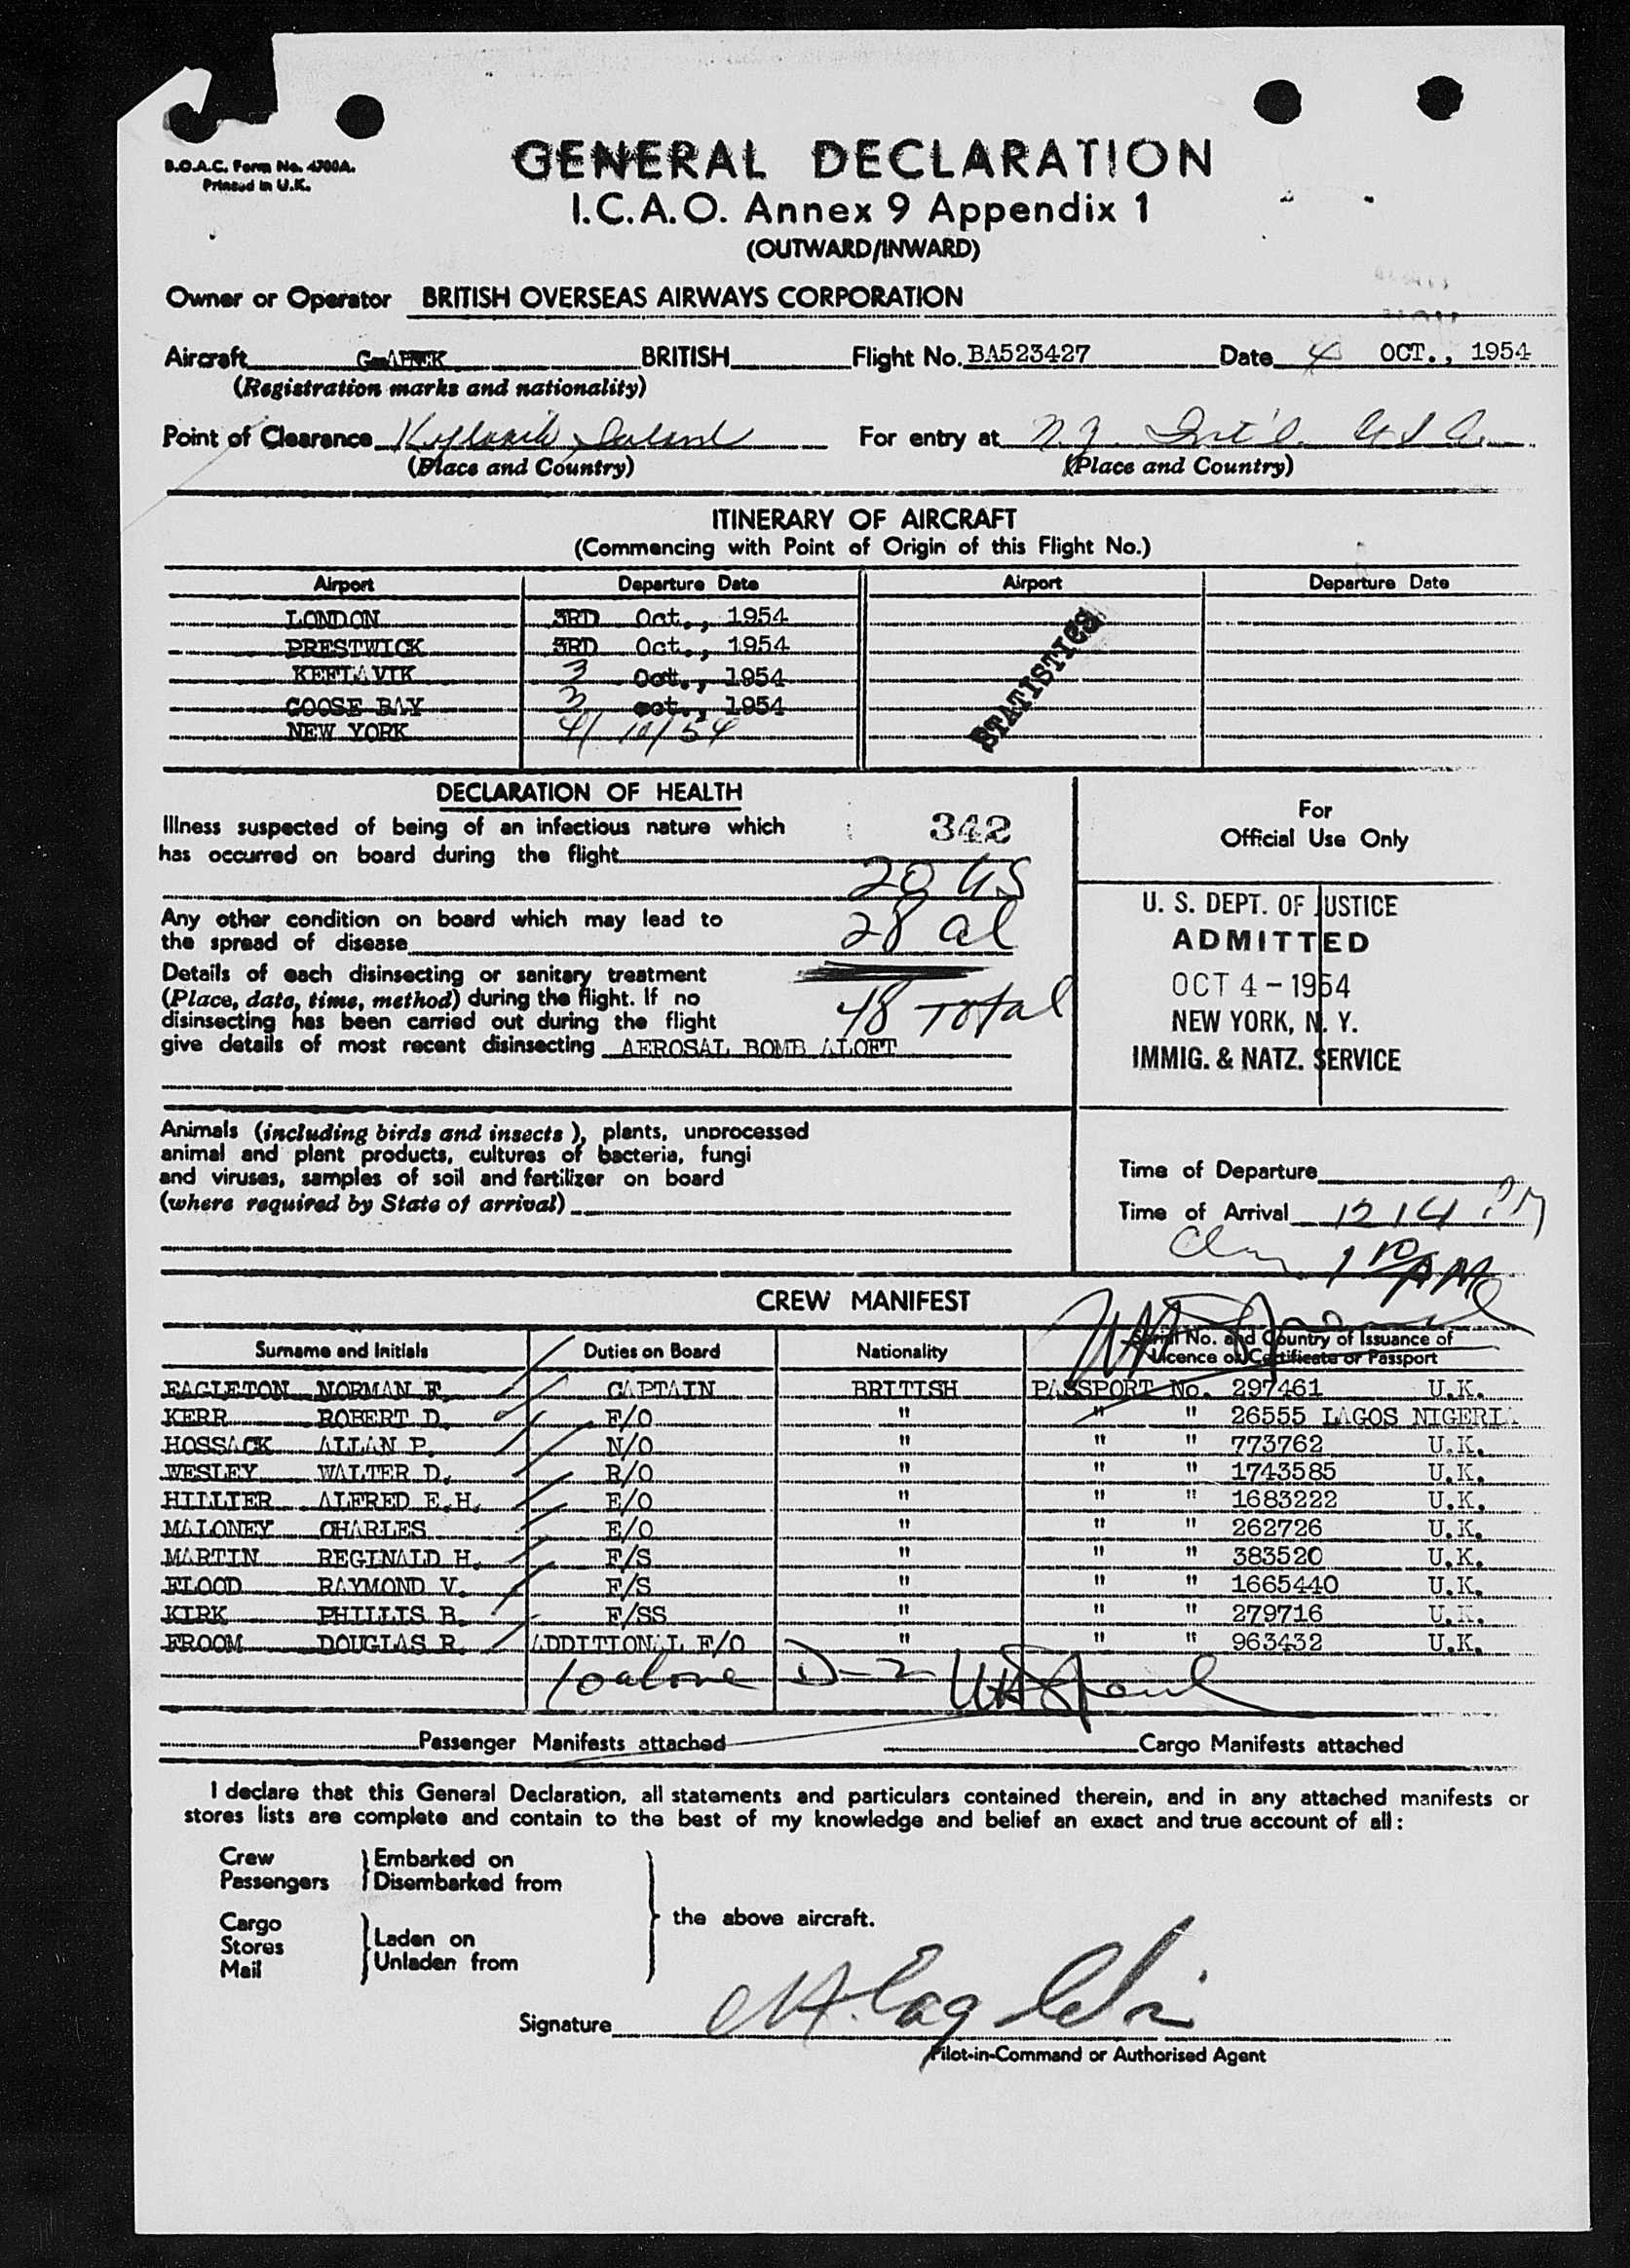 B.O.A.C. Form No. 4700A.
Printed in U.K.
GENERAL DECLARATION
I.C.A.O. Annex 9 Appendix 1
(OUTWARD/INWARD)
Owner or Operator BRITISH OVERSEAS AIRWAYS CORPORATION
Aircraft BRITISH Flight No. BA523427 Date 4 OCT., 1954
(Registration marks and nationality)
Point of Clearance For entry at N.Y. Int'l. U S A.
(Place and Country) (Place and Country)
ITINERARY OF AIRCRAFT
(Commencing with Point of Origin of this Flight No.)
Airport Departure Date Airport Departure Date
LONDON 3RD Oct., 1954
PRESTWICK 3RD Oct., 1954
KEFLAVIK 3 Oct., 1954
GOOSE BAY 3 oct., 1954
NEW YORK 4/10/54
STATISTICS
DECLARATION OF HEALTH
Illness suspected of being of an infectious nature which
has occurred on board during the flight
342
20 US
Any other condition on board which may lead to
the spread of disease
28 al
Details of each disinsecting or sanitary treatment
(Place, date, time, method) during the flight. If no
disinsecting has been carried out during the flight
give details of most recent disinsecting AEROSAL BOMB ALOFT
48 Total
For
Official Use Only
U. S. DEPT. OF JUSTICE
ADMITTED
OCT 4 - 1954
NEW YORK, N. Y.
IMMIG. & NATZ. SERVICE
Animals (including birds and insects), plants, unprocessed
animal and plant products, cultures of bacteria, fungi
and viruses, samples of soil and fertilizer on board
(where required by State of arrival)
Time of Departure
Time of Arrival 12 14
1 10 AM
CREW MANIFEST
Surname and Initials Duties on Board Nationality Serial No. and Country of Issuance of
Licence or Certificate or Passport
EAGLETON NORMAN F. CAPTAIN BRITISH PASSPORT No. 297461 U.K.
KERR ROBERT D. F/O " " " 26555 LAGOS NIGERIA
HOSSACK ALLAN P. N/O " " " 773762 U.K.
WESLEY WALTER D. R/O " " " 1743585 U.K.
HILLIER ALFRED E.H. E/O " " " 1683222 U.K.
MALONEY CHARLES E/O " " " 262726 U.K.
MARTIN REGINALD H. F/S " " " 383520 U.K.
FLOOD RAYMOND V. F/S " " " 1665440 U.K.
KIRK PHILLIS B. F/SS " " " 279716 U.K.
FROOM DOUGLAS R. ADDITIONAL F/O " " " 963432 U.K.
10 above D-2
Passenger Manifests attached Cargo Manifests attached
I declare that this General Declaration, all statements and particulars contained therein, and in any attached manifests or
stores lists are complete and contain to the best of my knowledge and belief an exact and true account of all:
Crew Embarked on
Passengers Disembarked from
the above aircraft.
Cargo
Stores Laden on
Mail Unladen from
Signature
Pilot-in-Command or Authorised Agent